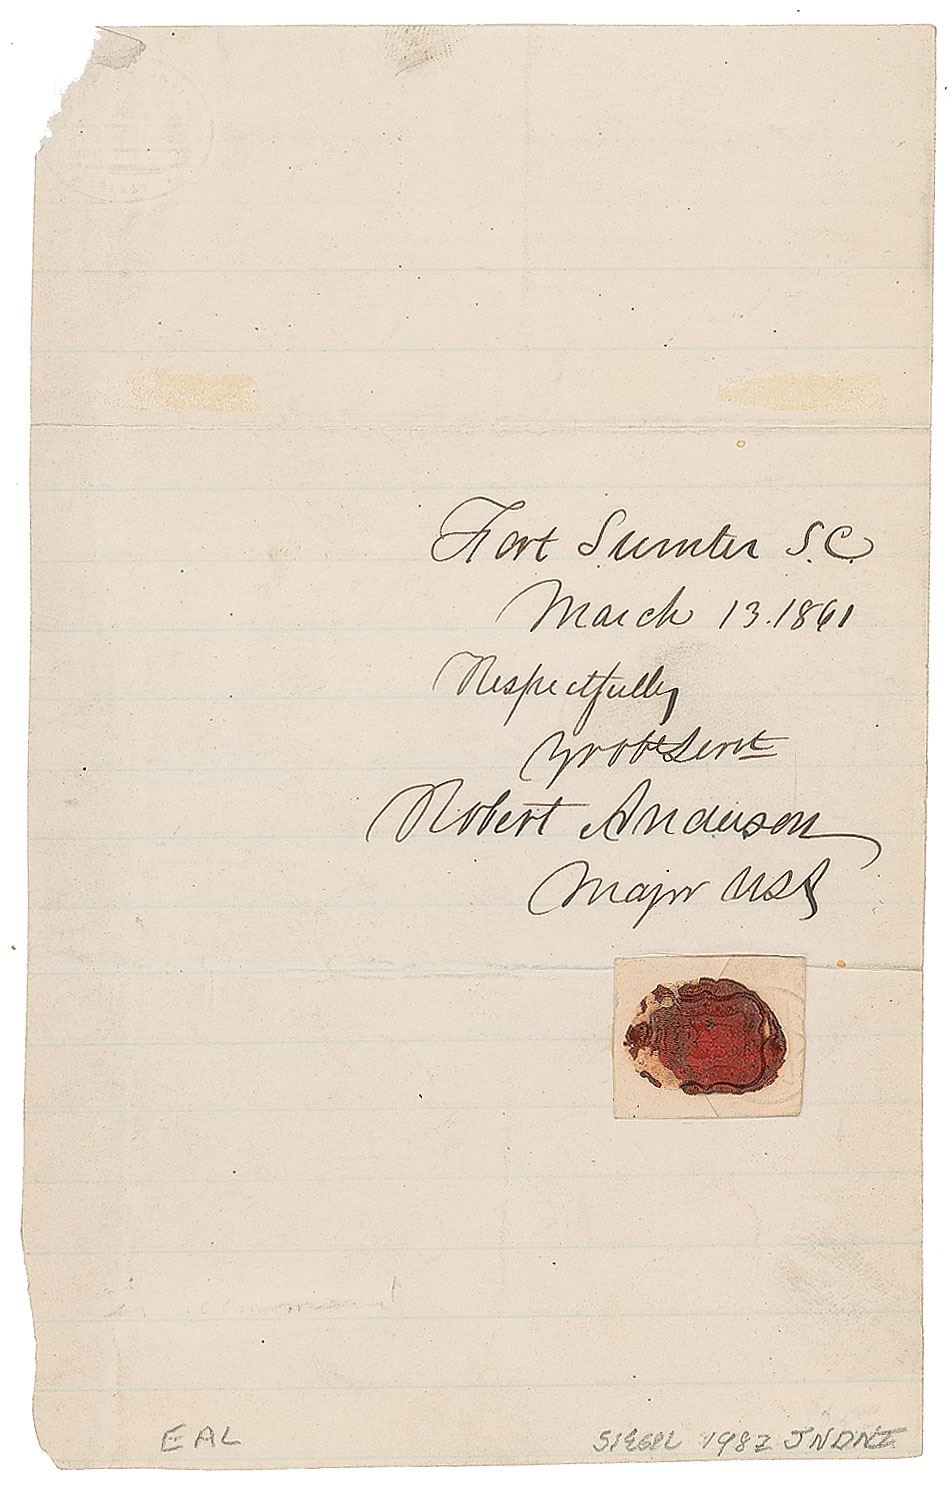 Fort Sumter S.C.
March 13. 1861
Respectfully
Yr obt Servt
Robert Anderson
Major USA
EAL
SIEGEL 1982